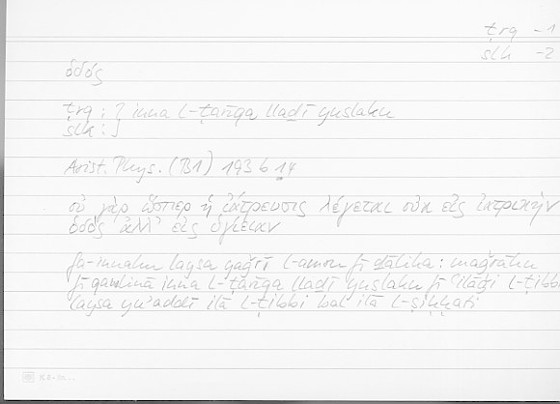 ṭrq - 1
slk - 2
ὁδός
ṭrq : } inna l-ṭarīqa lladī yuslaku
slk : }
Arist. Phys. (B1) 193 b 14
οὐ γὰρ ὥσπερ ἡ ἰάτρευσις λέγεται οὐκ εἰς ἰατρικὴν
ὁδὸς ἀλλ' εἰς ὑγίειαν
fa-innahu laysa yaǧrī l-amru fī dālika : maǧrāhu
fī qawlinā inna l-ṭarīqa lladī yuslaku fī ʿilāǧi l-ṭibbi
laysa yuʾaddī ilā l-ṭibbi bal ilā l-ṣiḥḥati